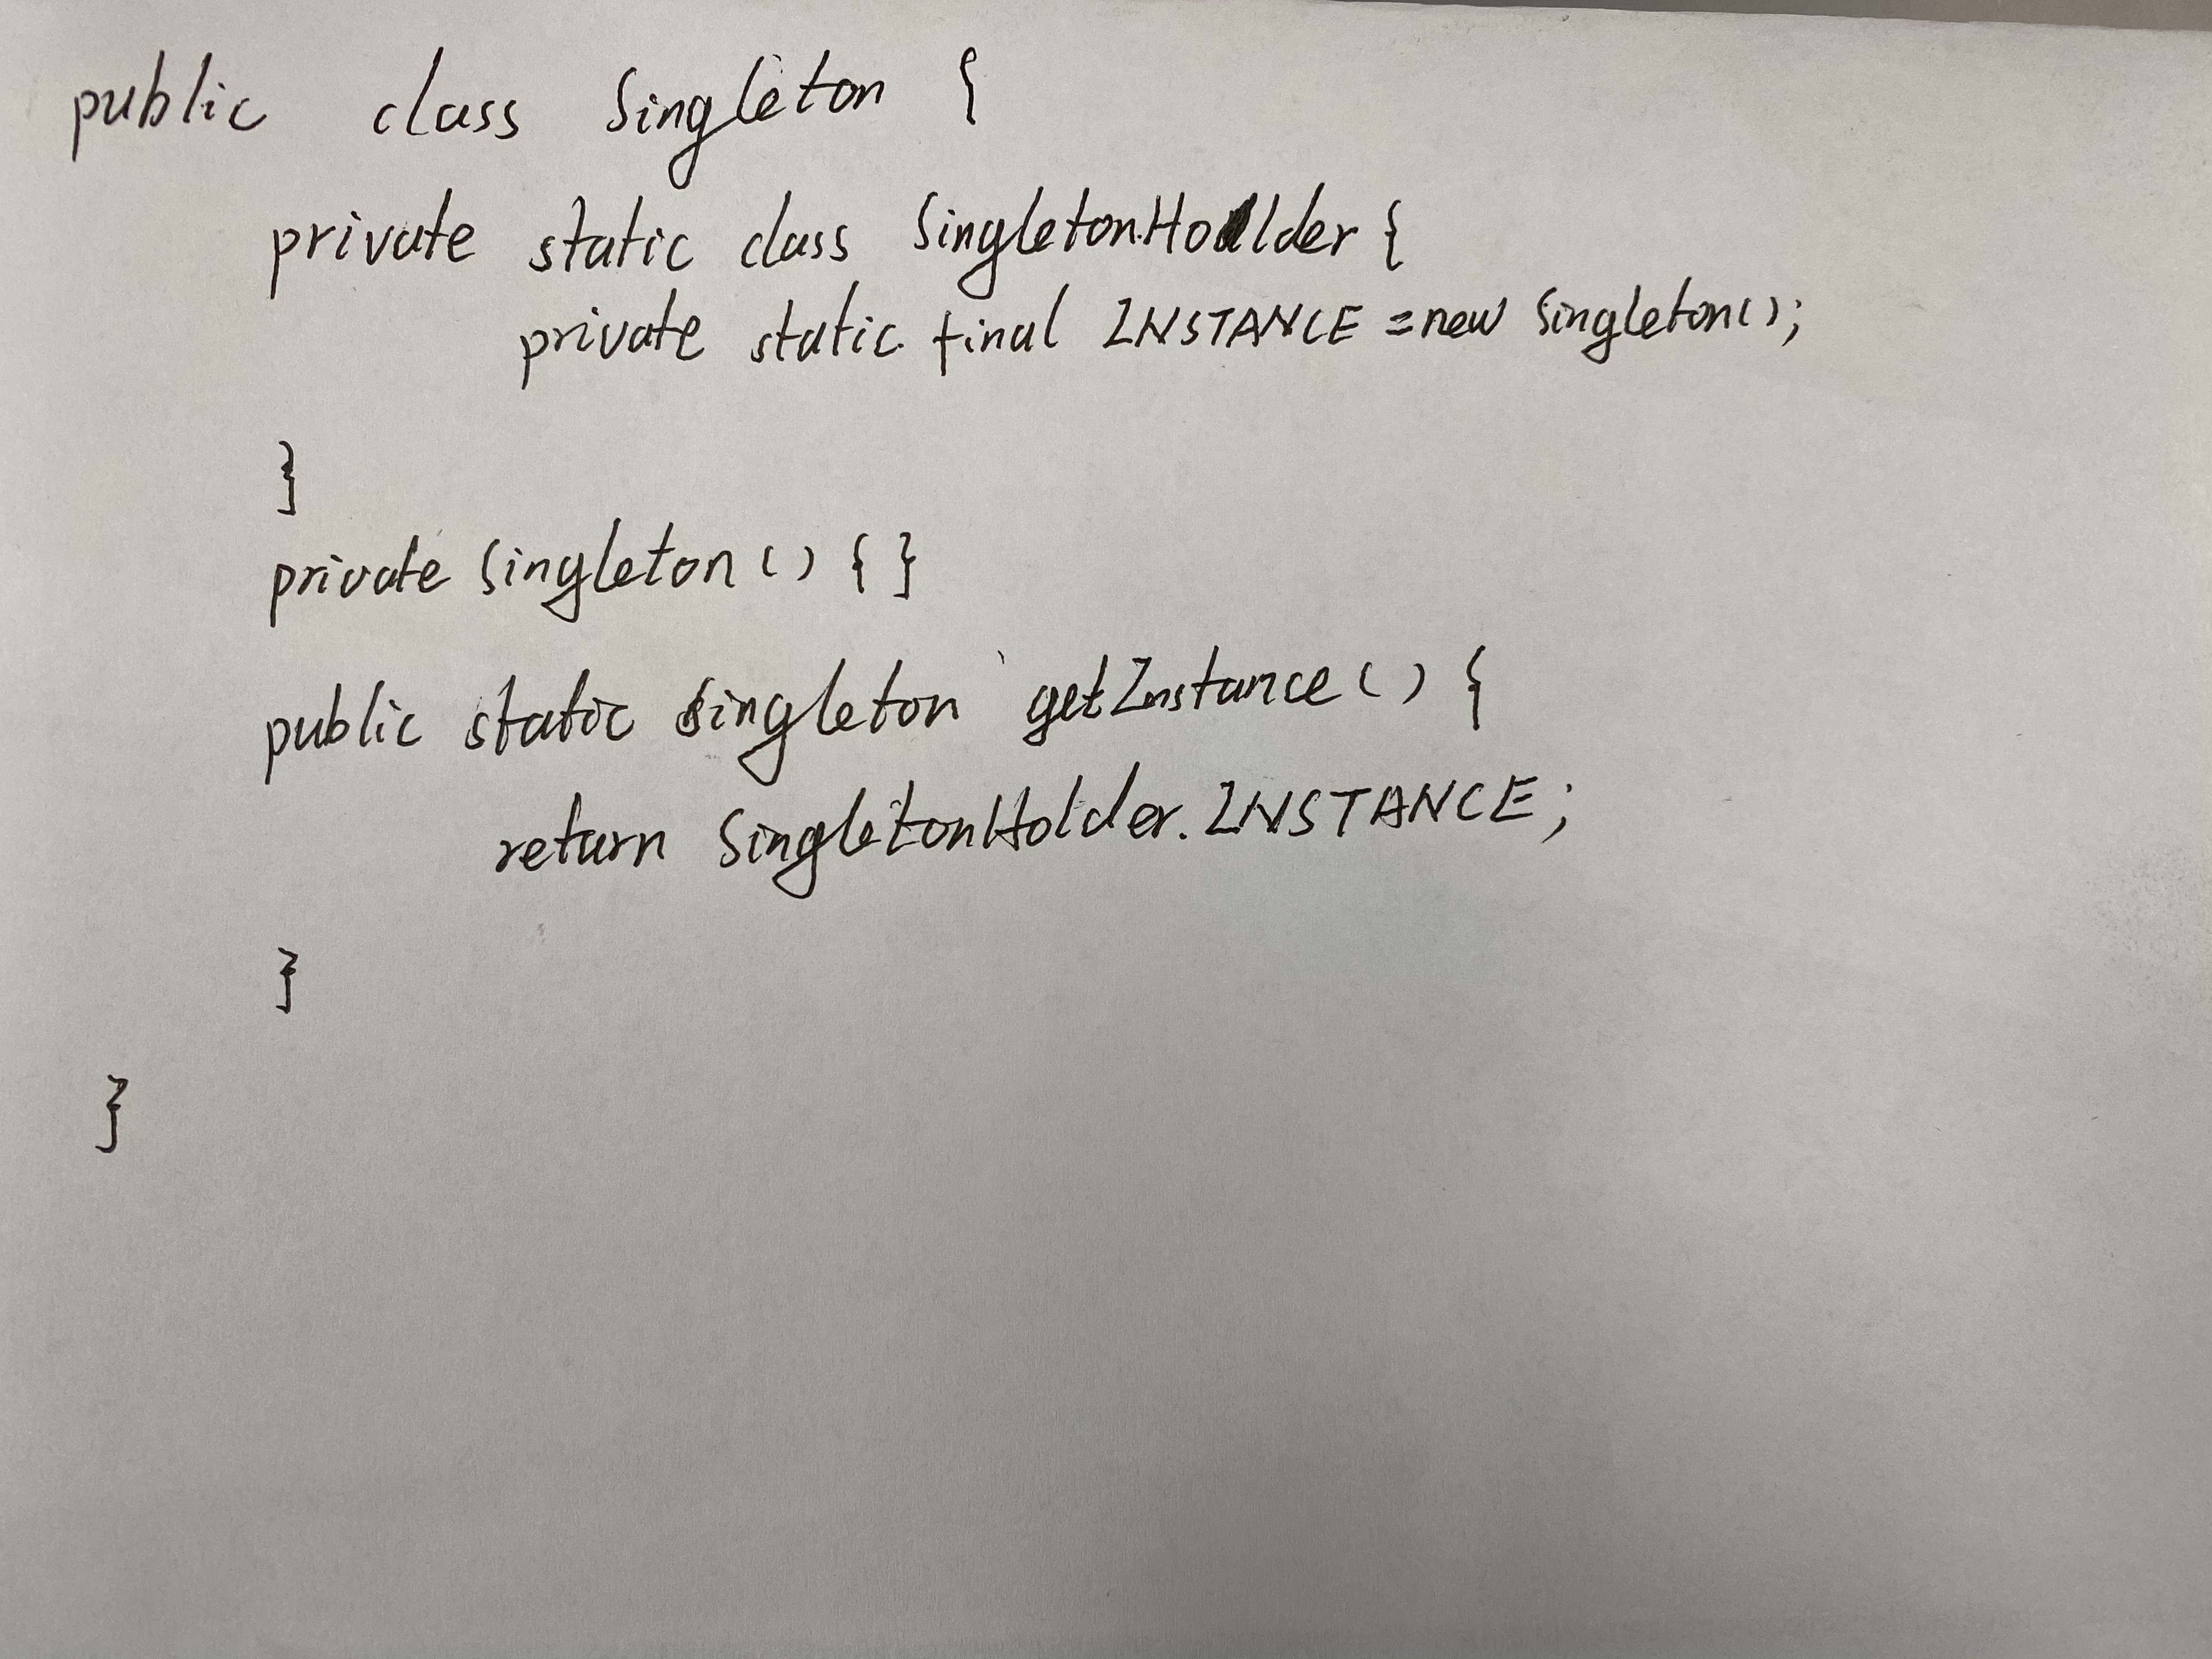 public class Singleton {
private static class SingletonHolder {
private static final INSTANCE = new Singleton();
}
private Singleton() { }
public static Singleton getInstance() {
return SingletonHolder.INSTANCE;
}
}